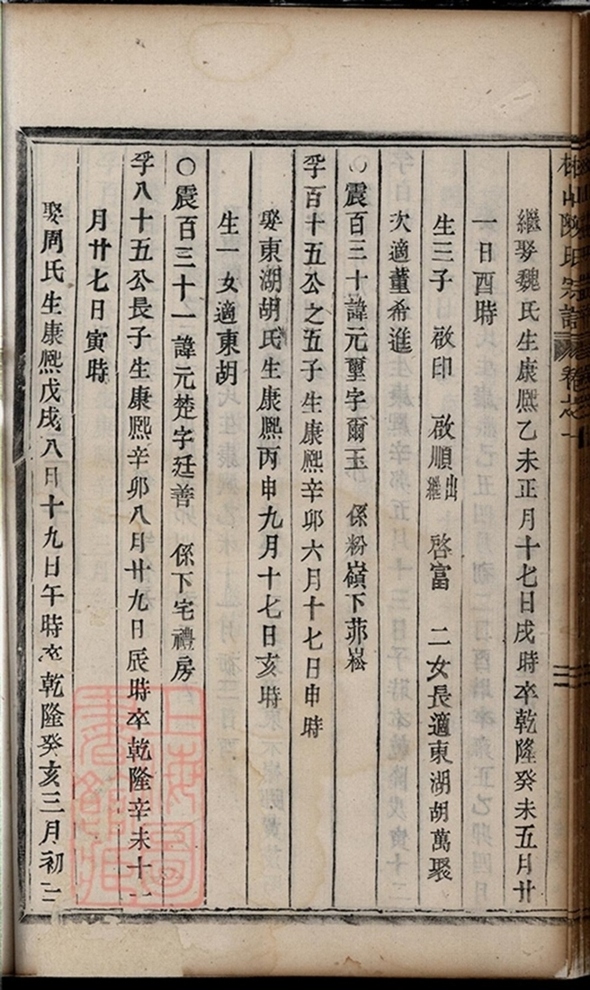 陳氏宗譜 卷之十
繼娶魏氏生康熙乙未正月十七日戌時卒乾隆癸未五月廿
一日酉時
生三子 啟印 啟順出繼 啓富 二女長適東湖胡萬聚
次適董希進
○震百三十諱元璽字爾玉 係粉嶺下菲崧
孚百十五公之五子生康熙辛卯六月十七日申時
娶東湖胡氏生康熙丙申九月十七日亥時
生一女適東胡
○震百三十一諱元楚字廷善 係下宅禮房
孚八十五公長子生康熙辛卯八月廿九日辰時卒乾隆辛未十一
月廿七日寅時
娶周氏生康熙戊戌八月十九日午時卒乾隆癸亥三月初二